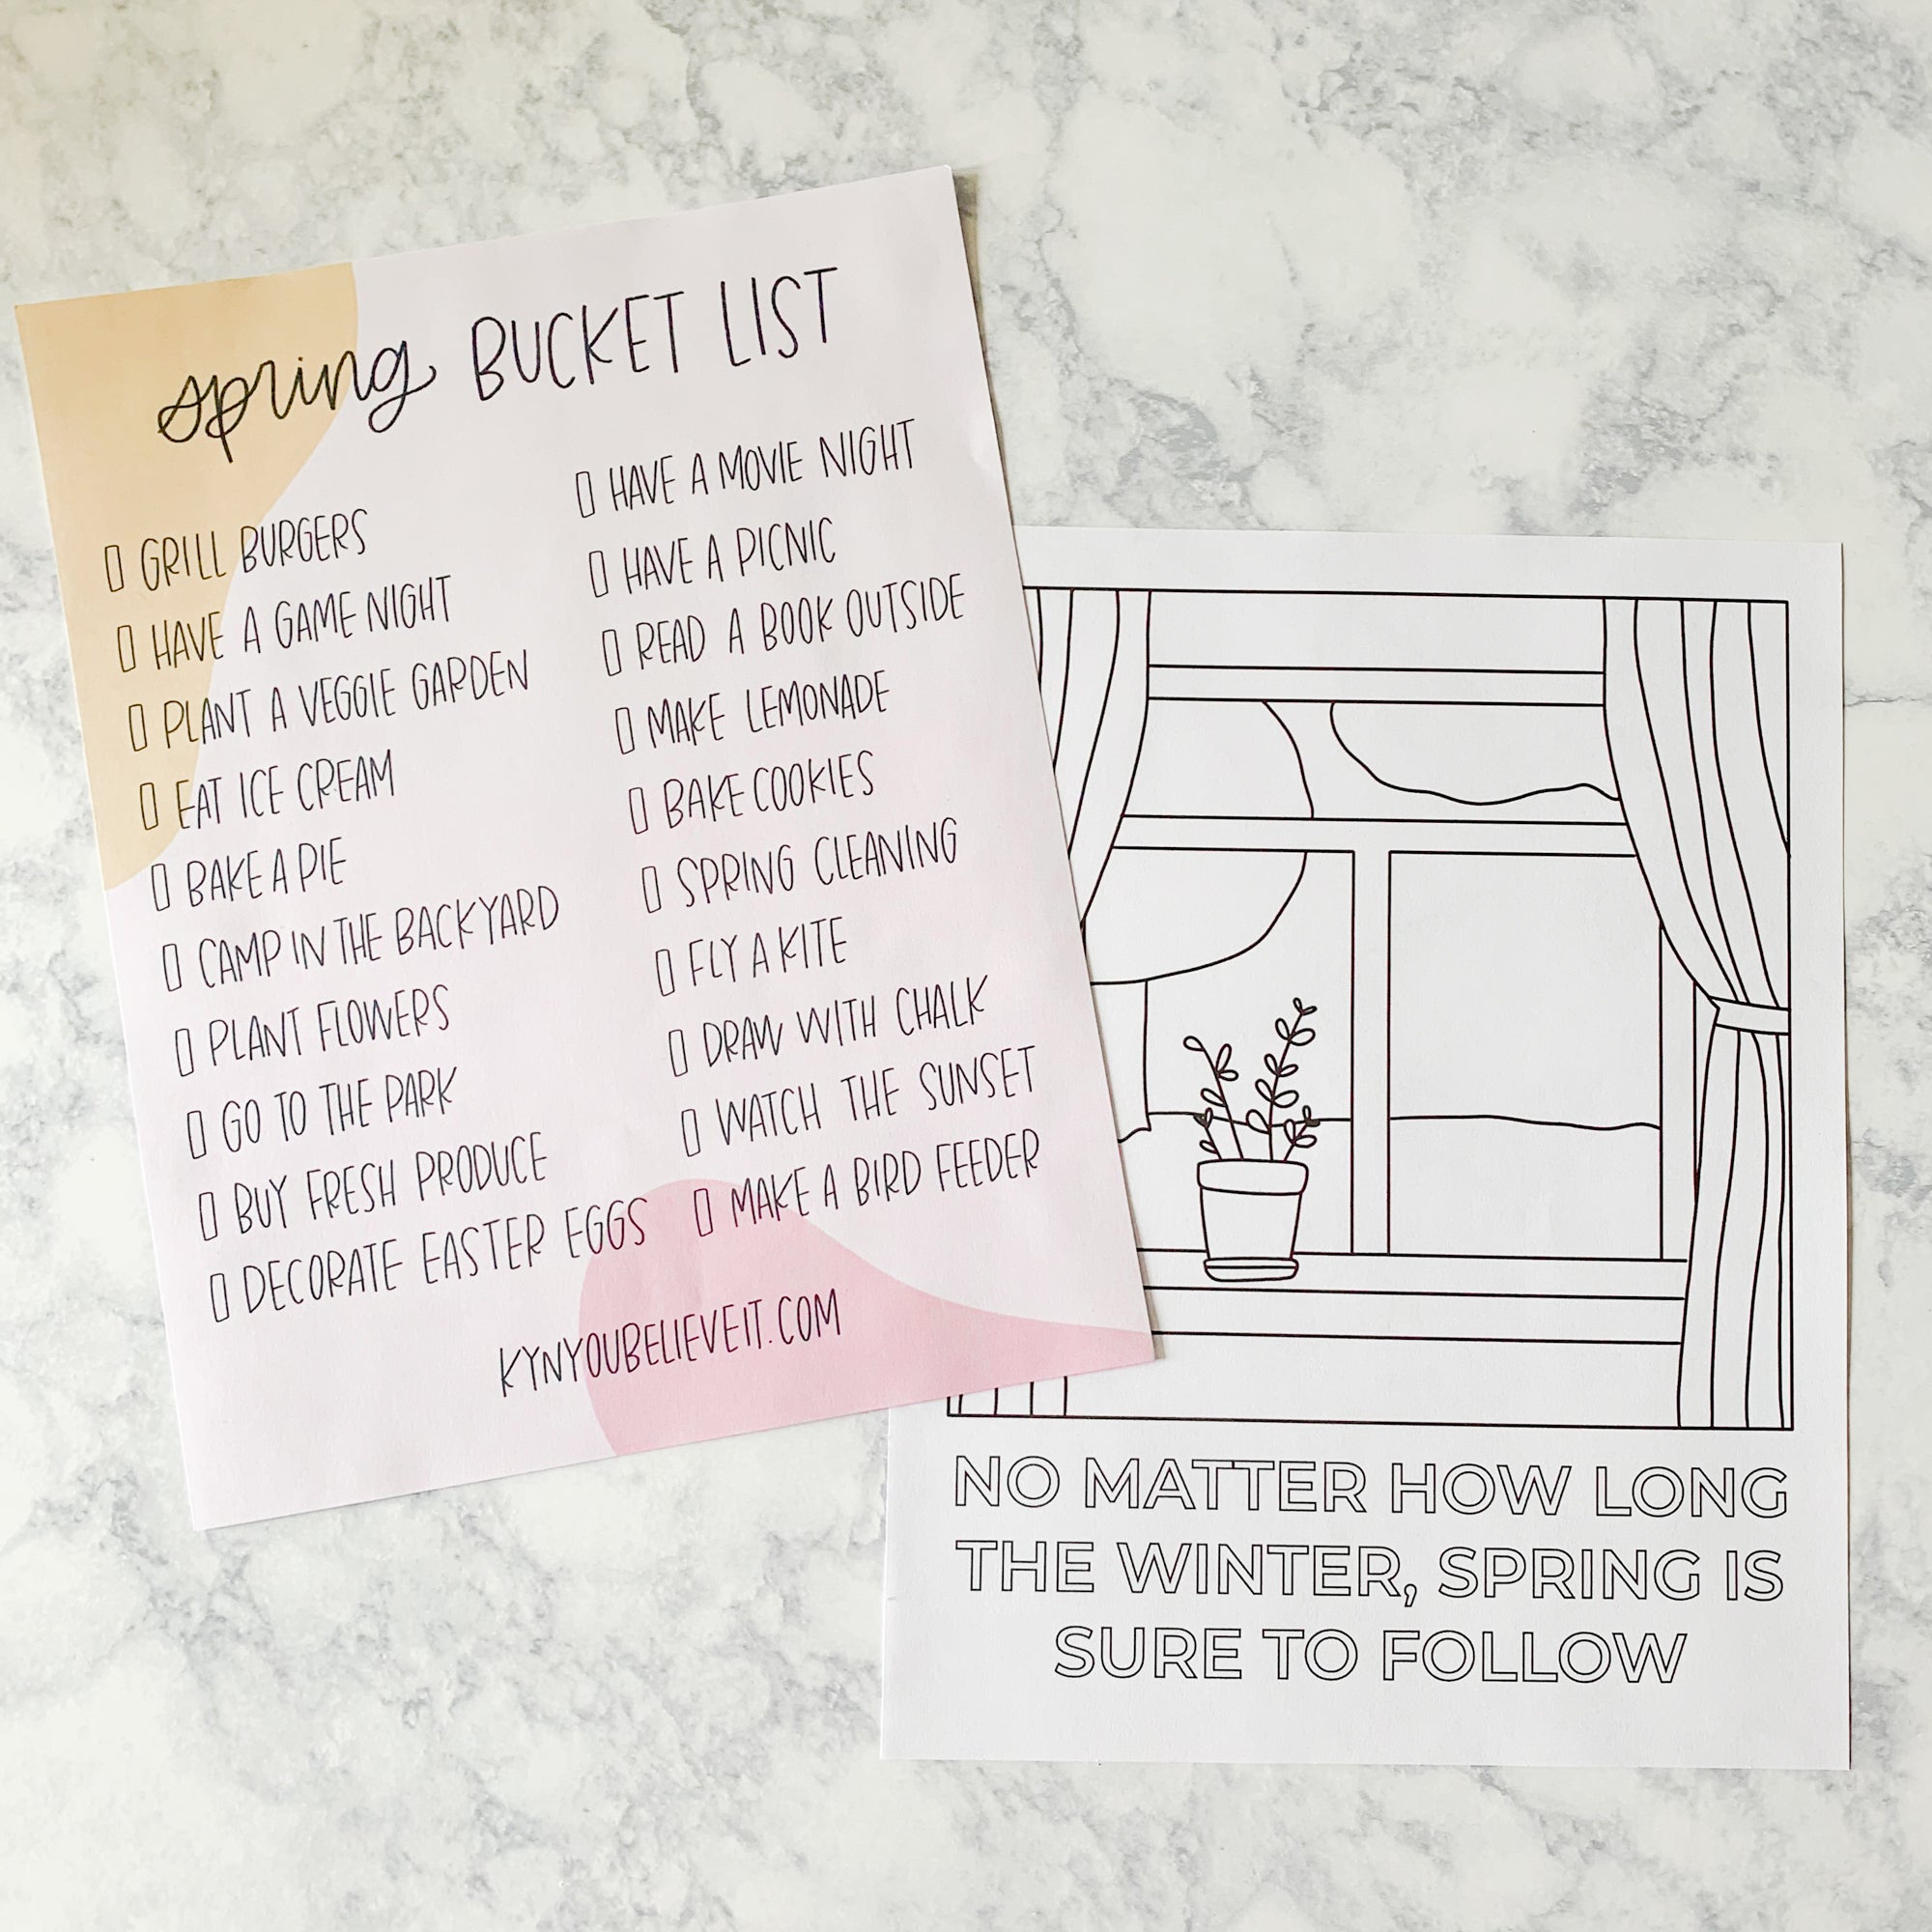 spring BUCKET LIST
GRILL BURGERS
HAVE A GAME NIGHT
PLANT A VEGGIE GARDEN
EAT ICE CREAM
BAKE A PIE
CAMP IN THE BACKYARD
PLANT FLOWERS
GO TO THE PARK
BUY FRESH PRODUCE
DECORATE EASTER EGGS
HAVE A MOVIE NIGHT
HAVE A PICNIC
READ A BOOK OUTSIDE
MAKE LEMONADE
BAKE COOKIES
SPRING CLEANING
FLY A KITE
DRAW WITH CHALK
WATCH THE SUNSET
MAKE A BIRD FEEDER
KYNYOUBELIEVEIT.COM
NO MATTER HOW LONG
THE WINTER, SPRING IS
SURE TO FOLLOW